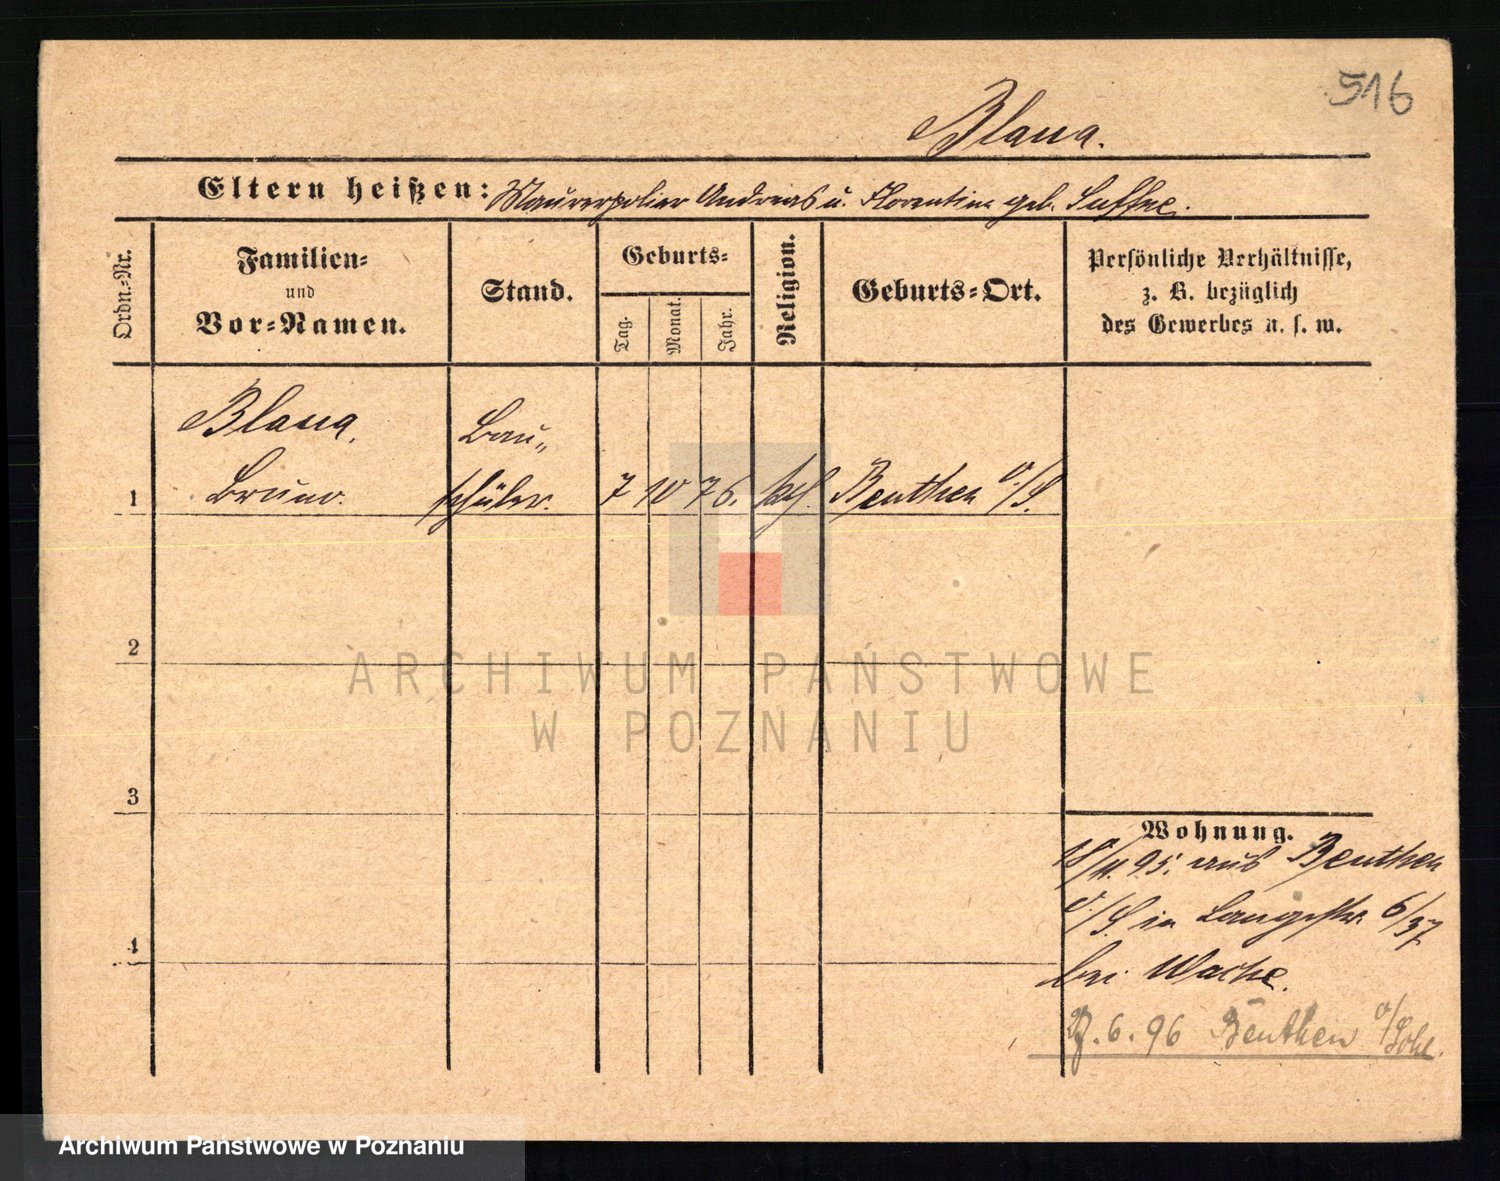 516
Blana.
Eltern heißen: Maurerpolier Andreas u. Florentine geb.
Ordn.-Nr.
Familien-
und
Vor-Namen.
Stand.
Geburts-
Tag.
Monat.
Jahr.
Religion.
Geburts-Ort.
Persönliche Verhältnisse,
z. B. bezüglich
des Gewerbes u. s. w.
Blana, Bau-
1 Bruno. schüler. 7 10 76. kth. Beuthen O/S.
2
3
4
Wohnung.
18/11. 95. aus Beuthen
O/S. in Langestr. 6/37
bei Wache.
6. 96 Beuthen O/Schl.
ARCHIWUM PAŃSTWOWE
W POZNANIU
Archiwum Państwowe w Poznaniu